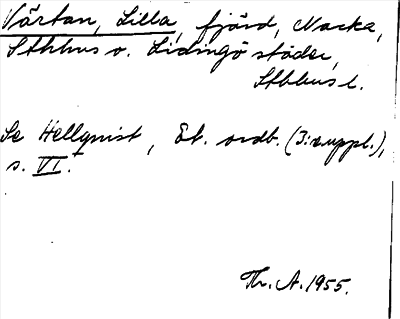 Värtan, Lilla, fjärd, Nacka,
Sthlms o. Lidingö städer,
Sthlms l.
Se Hellquist, Et. ordb. (3:e uppl.),
s. VI.
Th. A. 1955.